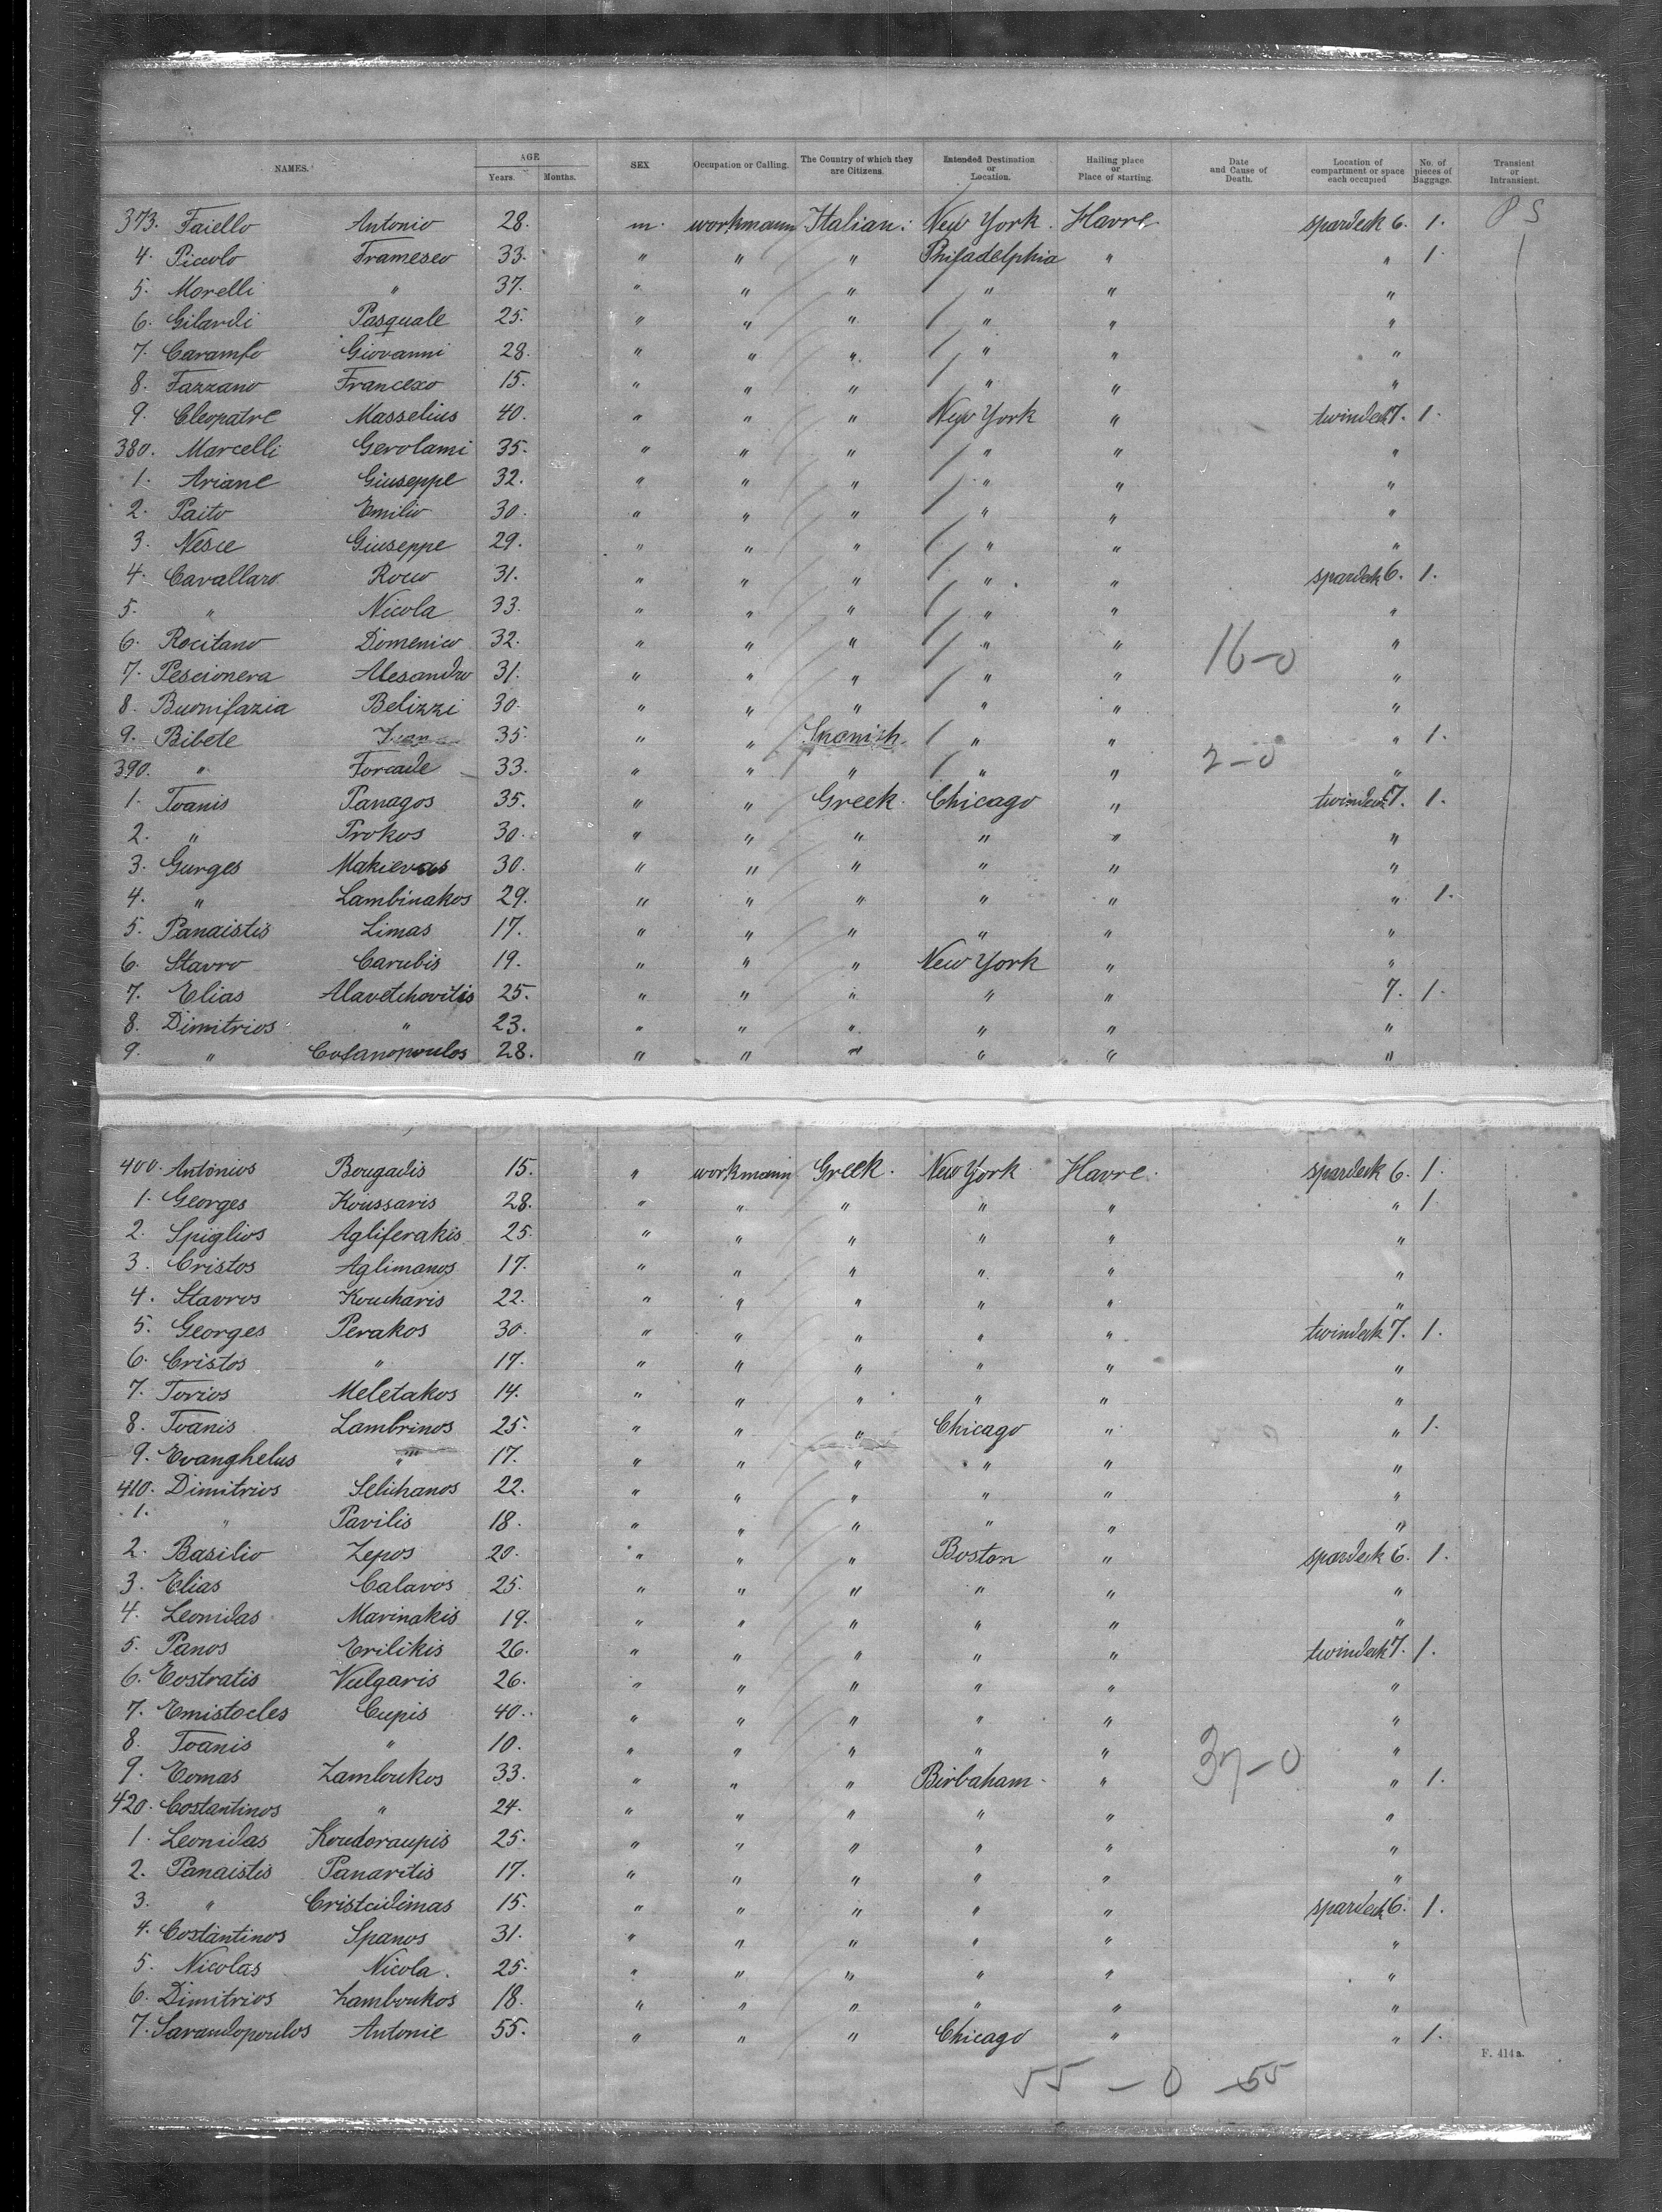 NAMES. AGE Years. Months. SEX Occupation or Calling. The Country of which they are Citizens. Intended Destination or Location. Hailing place or Place of starting. Date and Cause of Death. Location of compartment or space each occupied No. of pieces of Baggage. Transient or Intransient.
373. Faiello Antonio 28. m. workmann Italian. New York. Havre spardeck 6. 1. P S
4. Piccolo Framesco 33. " " " Philadelphia " " 1.
5. Morelli " 37. " " " " " "
6. Gilardi Pasquale 25. " " " " " "
7. Caramfo Giovanni 28. " " " " " "
8. Fazzano Francexo 15. " " " " " "
9. Cleopatre Masselius 40. " " " New York " twindeck 7. 1.
380. Marcelli Gerolami 35. " " " " " "
1. Ariane Giuseppe 32. " " " " " "
2. Paito Emilio 30. " " " " " "
3. Nesce Giuseppe 29. " " " " " "
4. Cavallaro Rocco 31. " " " " " spardeck 6. 1.
5. " Nicola 33. " " " " " "
6. Rocitano Domenico 32. " " " " " 16-0 "
7. Pescionera Alesandro 31. " " " " " "
8. Buonifazia Belizzi 30. " " " " " "
9. Bibete Juan 35. " " Spanish. " " " 1.
390. " Forcade 33. " " " " " 2-0 "
1. Toanis Panagos 35. " " Greek. Chicago " twindeck 7. 1.
2. " Prokos 30. " " " " " "
3. Gurges Makievas 30. " " " " " "
4. " Lambinakos 29. " " " " " " 1.
5. Panaistis Limas 17. " " " " " "
6. Stavro Carubis 19. " " " New York " "
7. Elias Alavetchovitis 25. " " " " " 7. 1.
8. Dimitrios " 23. " " " " " "
9. " Cofanopoulos 28. " " " " " "
400. Antonios Bougadis 15. " workmann Greek. New York Havre. spardeck 6. 1.
1. Georges Koussaris 28. " " " " " " 1.
2. Spiglios Agliferakis 25. " " " " " "
3. Cristos Aglimanos 17. " " " " " "
4. Stavros Koucharis 22. " " " " " "
5. Georges Perakos 30. " " " " " twindeck 7. 1.
6. Cristos " 17. " " " " " "
7. Torios Meletakos 14. " " " " " "
8. Toanis Lambrinos 25. " " " Chicago " " 1.
9. Evanghelus " 17. " " " " " "
410. Dimitrios Selichanos 22. " " " " " "
1. " Pavilis 18. " " " " " "
2. Basilio Zepos 20. " " " Boston " spardeck 6. 1.
3. Elias Calavos 25. " " " " " "
4. Leonidas Marinakis 19. " " " " " "
5. Panos Erilikis 26. " " " " " twindeck 7. 1.
6. Eostratis Vulgaris 26. " " " " " "
7. Emistocles Cupis 40. " " " " " "
8. Toanis " 10. " " " " " "
9. Eomas Zamboukos 33. " " " Birbaham. " 37-0 " 1.
420. Costantinos " 24. " " " " " "
1. Leonidas Koudoraupis 25. " " " " " "
2. Panaistis Panaritis 17. " " " " " "
3. " Cristodimas 15. " " " " " spardeck 6. 1.
4. Costantinos Spanos 31. " " " " " "
5. Nicolas Nicola. 25. " " " " " "
6. Dimitrios Zamboukos 18. " " " " " "
7. Sarandopoulos Antonie 55. " " " Chicago " " 1.
F. 414a.
55 - 0 - 55